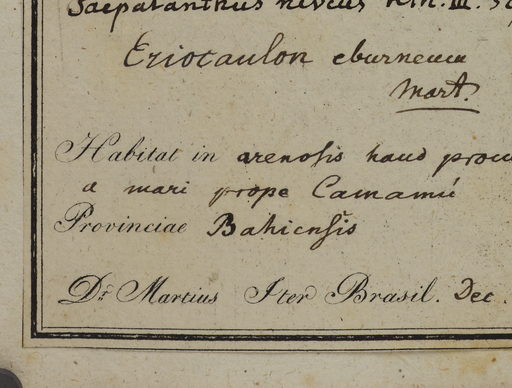 Saepalanthus niveus Kth. III.
Eriocaulon eburneum
Mart.
Habitat in arenosis haud procu
a mari prope Camamú
Provinciae Bahiensis
Dr Martius Iter Brasil. Dec.